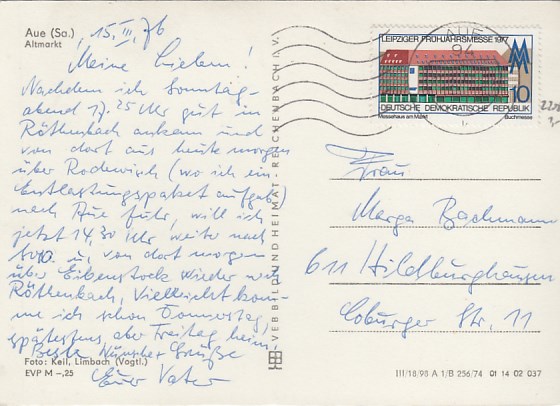 Aue (Sa.)
Altmarkt
15. III. 76
Meine Lieben!
Nachdem ich Sonntag-
abend 17.25 Uhr gut in
Röthenbach ankam und
von dort aus heute morgen
über Rodewisch (wo ich ein
Entlastungspaket aufgab)
nach Aue fuhr, will ich
jetzt 14,30 Uhr weiter nach
u. von dort morgen
über Eibenstock wieder nach
Röthenbach, Vielleicht kom-
me ich schon Donnerstag,
spätestens aber Freitag heim.
Beste Wünsche + Grüße
Euer Vater
Foto: Keil, Limbach (Vogtl.)
EVP M –,25
VEB BILD UND HEIMAT REICHENBACH I. V.
LEIPZIGER FRÜHJAHRSMESSE 1977
MM
10
DEUTSCHE DEMOKRATISCHE REPUBLIK
Messehaus am Markt Buchmesse
AUE
94
Frau
Marga Bachmann
611 Hildburghausen
Coburger Str. 11
III/18/98 A 1/B 256/74 01 14 02 037